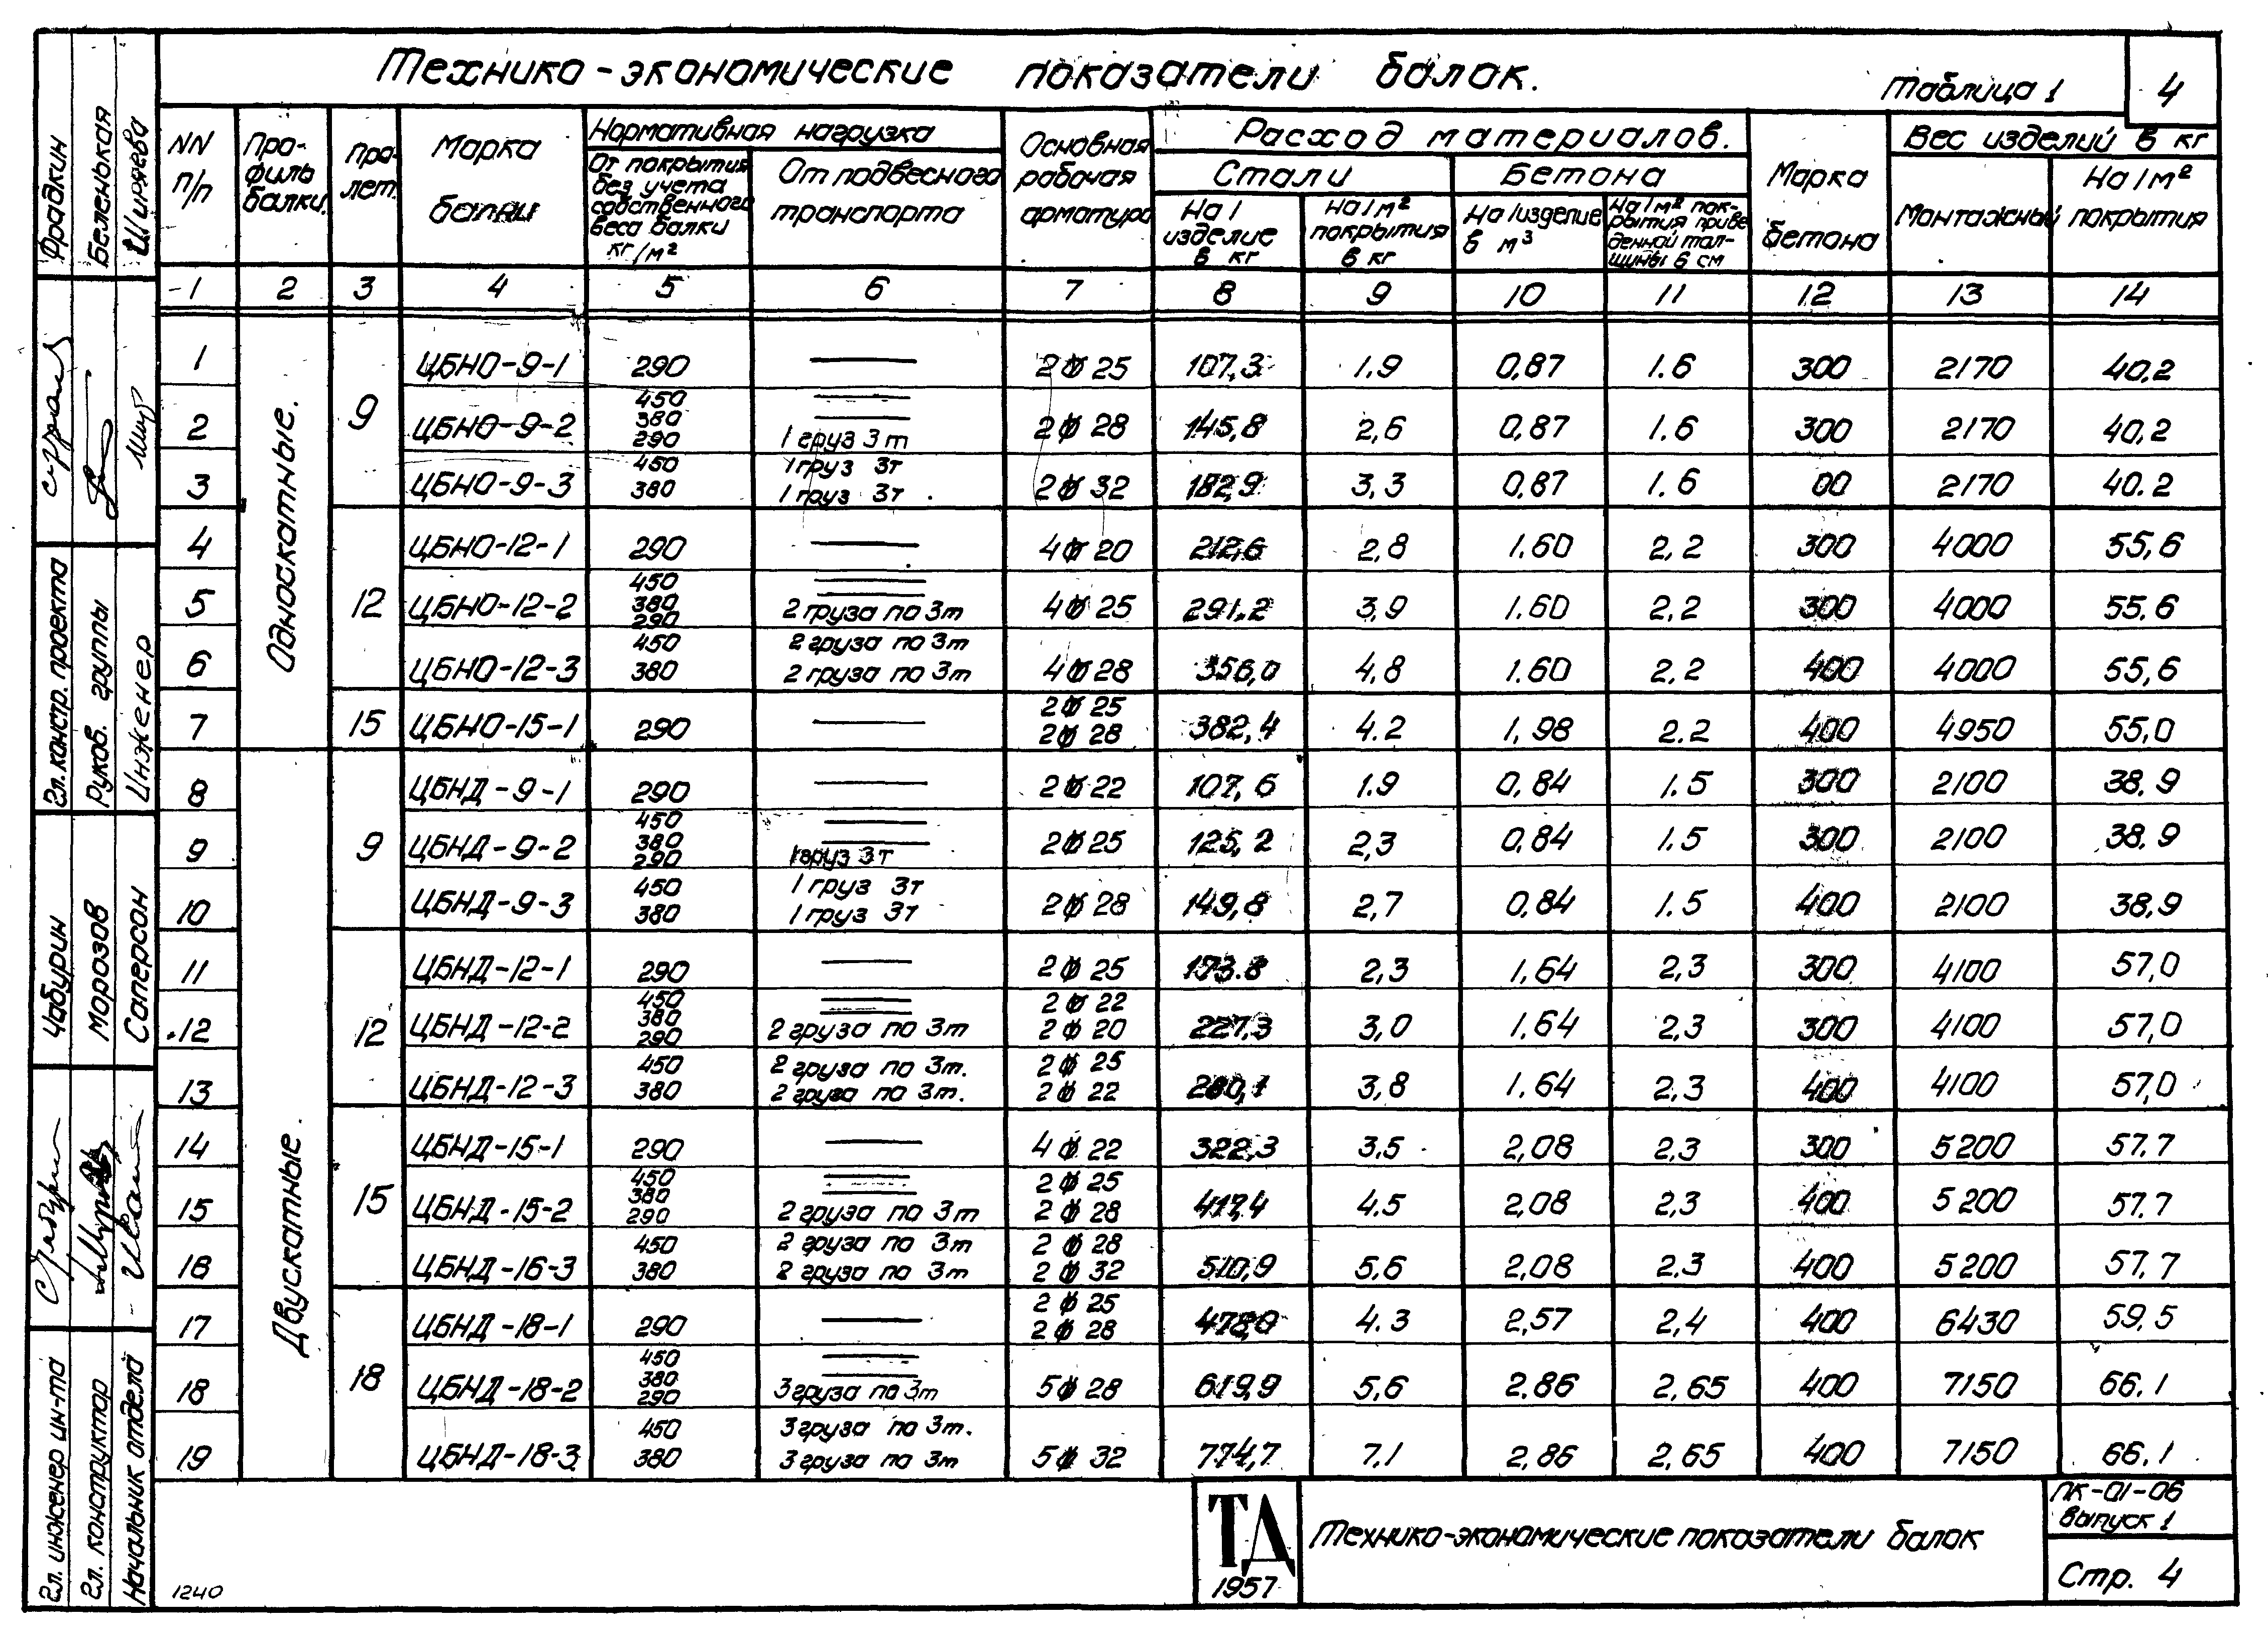 Технико-экономические показатели балок.
Таблица 1
4
NN п/п
Про-филь балки.
Про-лет.
Марка балки
Нормативная нагрузка
От покрытия без учета собственного веса балки кг/м²
От подвесного транспорта
Основная рабочая арматура
Расход материалов.
Стали
На 1 изделие в кг
На 1 м² покрытия в кг
Бетона
На 1 изделие в м³
На 1 м² пок-рытия приве денной тол-щины в см
Марка бетона
Вес изделий в кг
Монтажный
На 1 м² покрытия
1 2 3 4 5 6 7 8 9 10 11 12 13 14
Односкатные.
9
1 ЦБНО-9-1 290 — 2ф25 107,3 1.9 0,87 1.6 300 2170 40,2
2 ЦБНО-9-2 450 — 380 — 290 1 груз 3т 2ф28 145,8 2,6 0,87 1.6 300 2170 40,2
3 ЦБНО-9-3 450 1 груз 3т 380 1 груз 3т 2ф32 182,9 3,3 0,87 1.6 00 2170 40.2
12
4 ЦБНО-12-1 290 — 4ф20 212,6 2,8 1.60 2,2 300 4000 55,6
5 ЦБНО-12-2 450 — 380 — 290 2 груза по 3т 4ф25 291.2 3,9 1.60 2,2 300 4000 55,6
6 ЦБНО-12-3 450 2 груза по 3т 380 2 груза по 3т 4ф28 356,0 4,8 1.60 2.2 400 4000 55,6
15
7 ЦБНО-15-1 290 — 2ф25 2ф28 382,4 4.2 1,98 2.2 400 4950 55,0
Двускатные.
9
8 ЦБНД-9-1 290 — 2ф22 107,6 1.9 0,84 1.5 300 2100 38,9
9 ЦБНД-9-2 450 — 380 — 290 1 груз 3т 2ф25 125,2 2,3 0,84 1.5 300 2100 38,9
10 ЦБНД-9-3 450 1 груз 3т 380 1 груз 3т 2ф28 149,8 2,7 0,84 1.5 400 2100 38,9
12
11 ЦБНД-12-1 290 — 2ф25 173.8 2,3 1,64 2,3 300 4100 57,0
12 ЦБНД-12-2 450 — 380 — 290 2 груза по 3т 2ф22 2ф20 227,3 3,0 1,64 2,3 300 4100 57,0
13 ЦБНД-12-3 450 2 груза по 3т. 380 2 груза по 3т. 2ф25 2ф22 280,1 3,8 1,64 2,3 400 4100 57,0
15
14 ЦБНД-15-1 290 — 4ф22 322,3 3.5 2,08 2,3 300 5200 57.7
15 ЦБНД-15-2 450 — 380 — 290 2 груза по 3т 2ф25 2ф28 417,4 4.5 2,08 2,3 400 5200 57.7
18 ЦБНД-16-3 450 2 груза по 3т 380 2 груза по 3т 2ф28 2ф32 510,9 5,6 2,08 2.3 400 5200 57,7
18
17 ЦБНД-18-1 290 — 2ф25 2ф28 478,0 4.3 2,57 2,4 400 6430 59,5
18 ЦБНД-18-2 450 — 380 — 290 3 груза по 3т 5ф28 619,9 5,6 2.86 2,65 400 7150 66.1
19 ЦБНД-18-3 450 3 груза по 3т. 380 3 груза по 3т 5ф32 774,7 7.1 2,86 2,65 400 7150 66.1
ТД
1957
Технико-экономические показатели балок
ПК-01-06
Выпуск 1
Стр. 4
1240
Гл. инженер ин-та
Гл. конструктор
Начальник отдела
Чабурин
Морозов
Саперсон
Гл. констр. проекта
Руков. группы
Инженер
Фрадкин
Беленькая
Ширяева